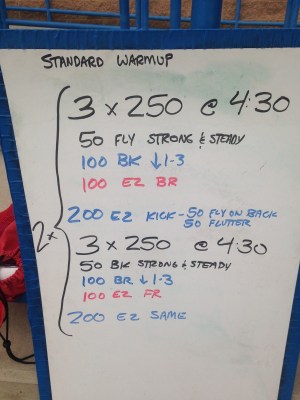 STANDARD WARMUP
3 x 250 @ 4:30
50 FLY STRONG & STEADY
100 BK ↓1-3
100 EZ BR
200 EZ KICK - 50 FLY ON BACK
50 FLUTTER
2x
3 x 250 @ 4:30
50 BK STRONG & STEADY
100 BR ↓1-3
100 EZ FR
200 EZ SAME